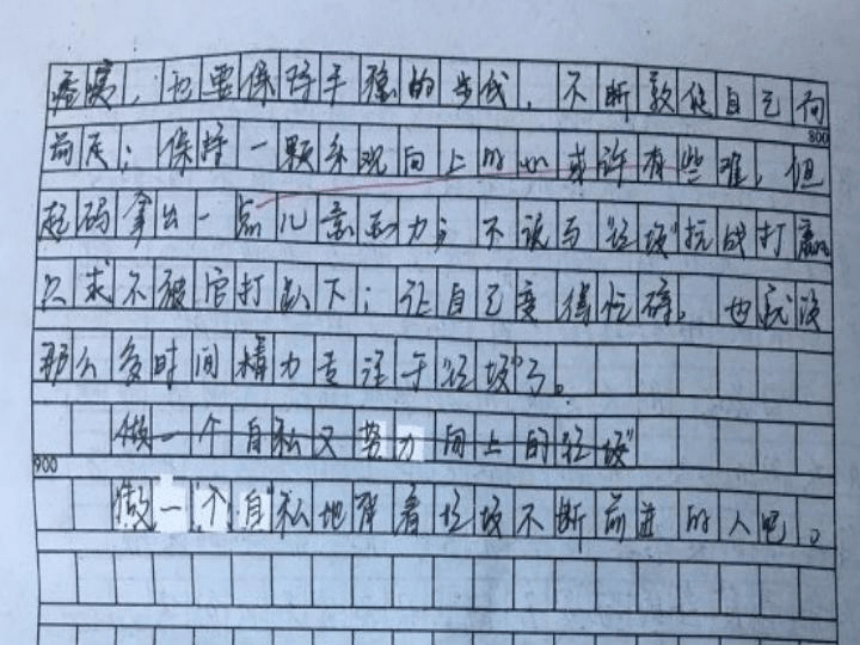 疮痍，也要保持平稳的步伐，不断敦促自己向
800
前；保持一颗乐观向上的心或许有些难，但
起码拿出一点儿意志力；不说与“垃圾”抗战打赢
只求不被它打趴下；让自己变得忙碌，也就没
那么多时间精力专注于“垃圾”了。
做一个自私又努力向上的“垃圾”
900
做一个自私地背着垃圾不断前进的人吧。